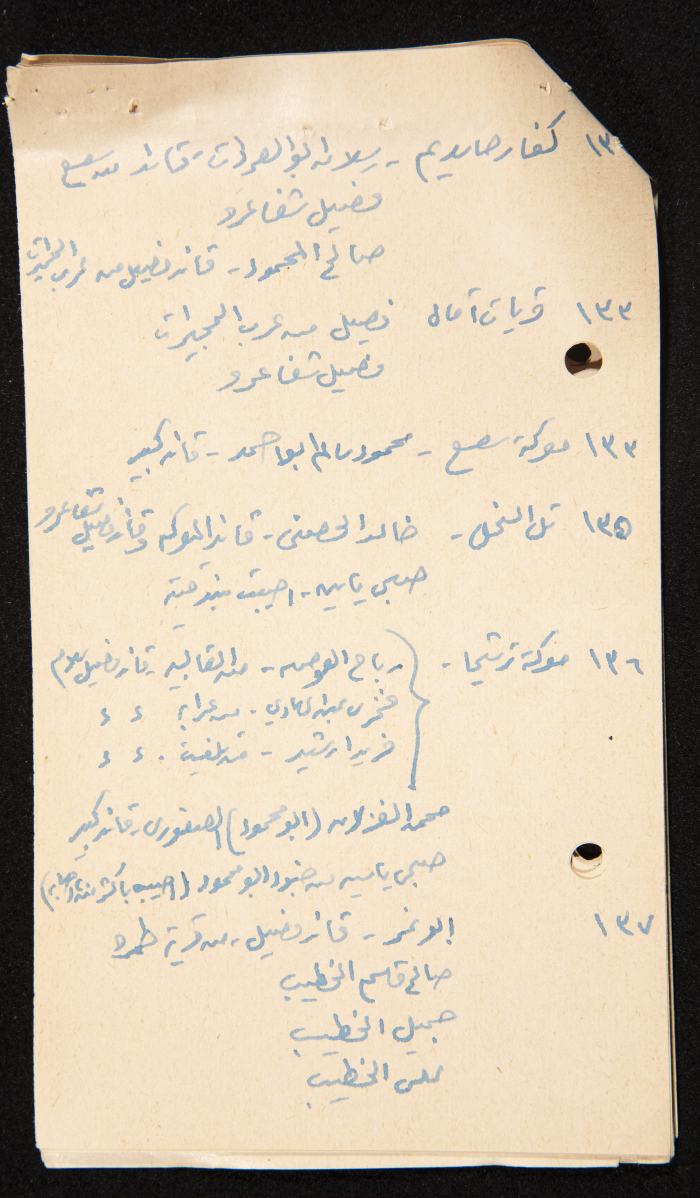 كفار حاسيديم - رسلان ابو العردات - قائد منه سعسع
فصيل شفا عمرو
صالح المحمود - قائد فصيل من عرب الحجيرات
١٣٣ قريات آتا فصيل من عرب الحجيرات
فصيل شفا عمرو
١٣٣ معركة سعسع - محمود سالم ابو احمد - قائد كبير
١٣٥ تل النحل - خالد الحصني - قائد المعركة وقائد فصيل شفا عمرو
صبحي ياسين - اصيبت بندقيته
١٣٦ معركة ترشيحا - رباح العوض - قائد فصيل
فخري عبد الهادي - من عرابة ء ء
فريد ارشيد - ء ء
محمد الغزلان (ابو محمود) الصفوري - قائد كبير
صبحي ياسين من جنود ابو محمود
١٣٧ ابو نمر - قائد فصيل - من قرية طمره
صالح قاسم الخطيب
جميل الخطيب
علي الخطيب